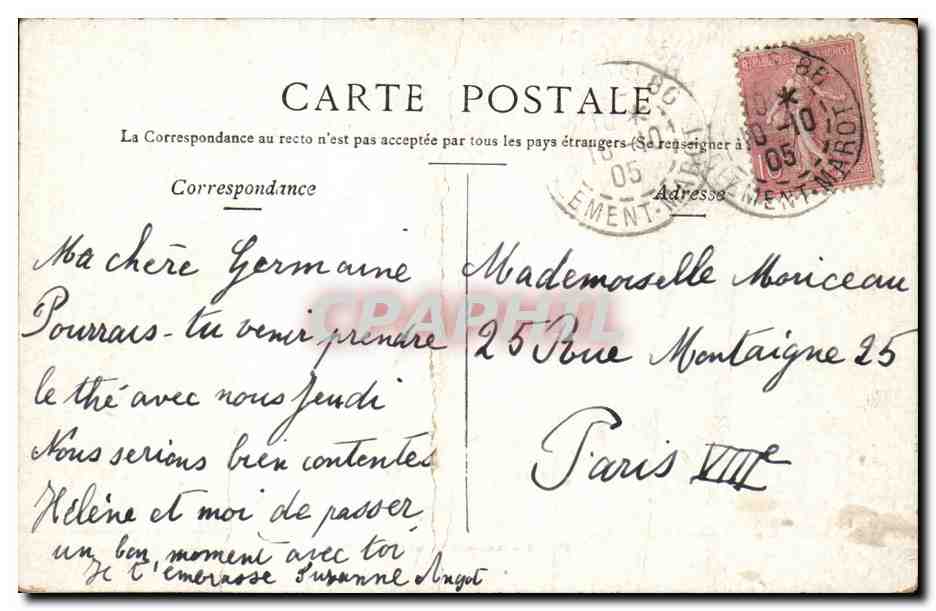 CARTE POSTALE
La Correspondance au recto n'est pas acceptée par tous les pays étrangers (Se renseigner à
Correspondance
Adresse
Ma chère Germaine
Pourrais-tu venir prendre
le thé avec nous Jeudi
Nous serions bien contentes
Hélène et moi de passer
un bon moment avec toi
Je t'embrasse Suzanne Angot
Mademoiselle Moriceau
25 Rue Montaigne 25
Paris VIIIe
CPAPHIL
86
10
05
EMENT-MAROT
86
10
05
EMENT-MAROT
10